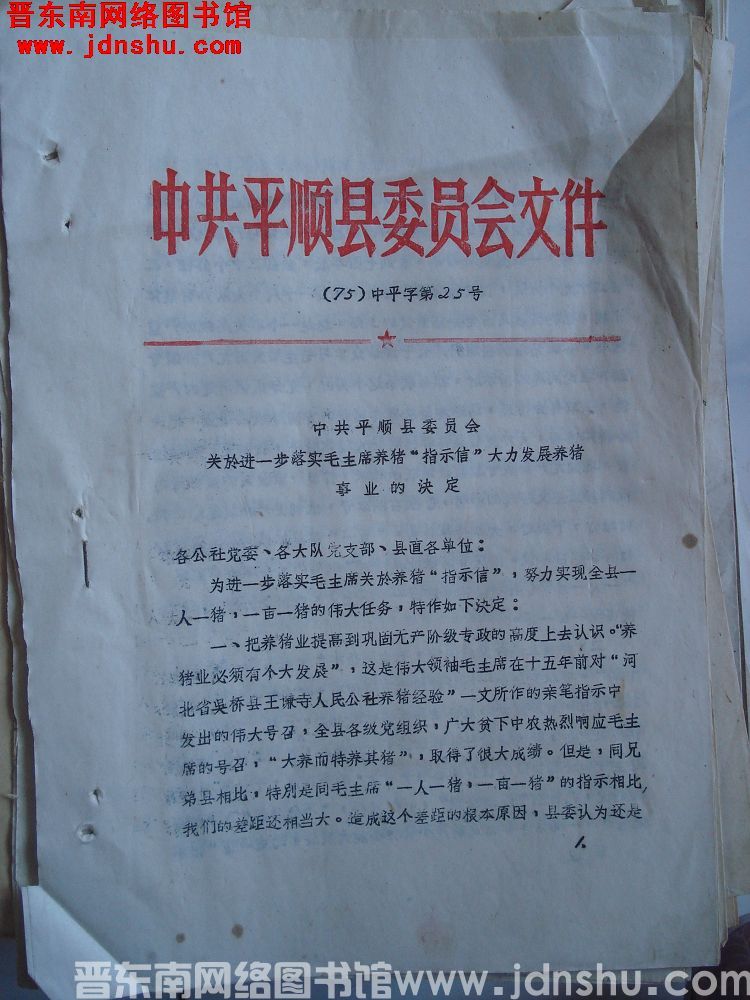 晋东南网络图书馆
www.jdnshu.com
中共平顺县委员会文件
(75)中平字第25号
中共平顺县委员会
关於进一步落实毛主席养猪“指示信”大力发展养猪
事业的决定
各公社党委、各大队党支部、县直各单位：
为进一步落实毛主席关於养猪“指示信”，努力实现全县一
人一猪，一亩一猪的伟大任务，特作如下决定：
一、把养猪业提高到巩固无产阶级专政的高度上去认识。“养
猪业必须有个大发展”，这是伟大领袖毛主席在十五年前对“河
北省吴桥县王谦寺人民公社养猪经验”一文所作的亲笔指示中
发出的伟大号召，全县各级党组织，广大贫下中农热烈响应毛主
席的号召，“大养而特养其猪”，取得了很大成绩。但是，同兄
弟县相比，特别是同毛主席“一人一猪，一亩一猪”的指示相比，
我们的差距还相当大。造成这个差距的根本原因，县委认为还是
1.
晋东南网络图书馆www.jdnshu.com